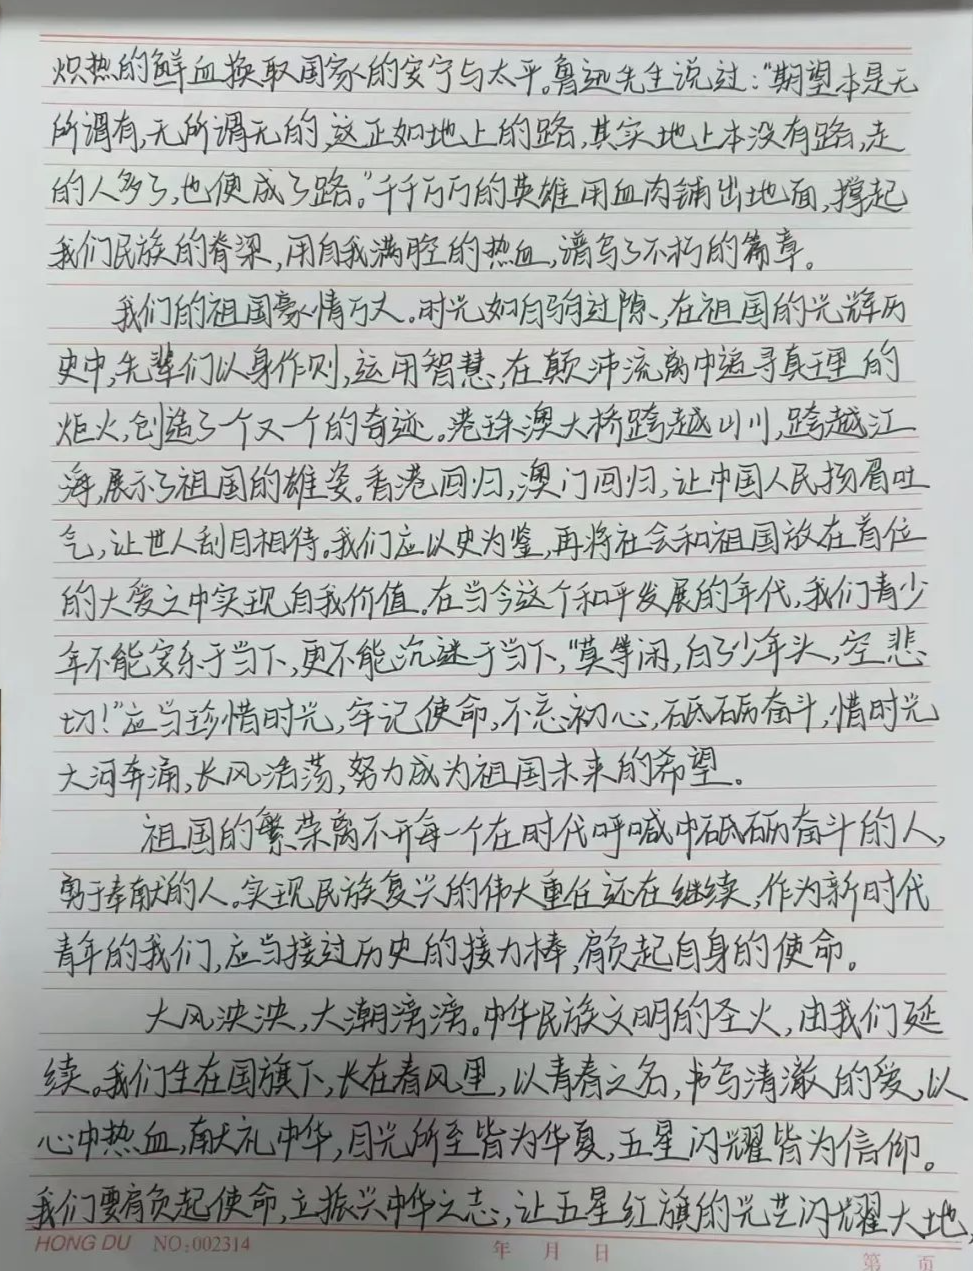 炽热的鲜血换取国家的安宁与太平。鲁迅先生说过：“期望本是无
所谓有，无所谓无的，这正如地上的路，其实地上本没有路，走
的人多了，也便成了路。”千千万万的英雄用血肉铺出地面，撑起
我们民族的脊梁，用自我满腔的热血，谱写了不朽的篇章。
我们的祖国豪情万丈。时光如白驹过隙，在祖国的光辉历
史中，先辈们以身作则，运用智慧，在颠沛流离中追寻真理的
炬火，创造了一个又一个的奇迹。港珠澳大桥跨越山川，跨越江
海，展示了祖国的雄姿。香港回归，澳门回归，让中国人民扬眉吐
气，让世人刮目相待。我们应以史为鉴，再将社会和祖国放在首位
的大爱之中实现自我价值。在当今这个和平发展的年代，我们青少
年不能安乐于当下，更不能沉迷于当下，“莫等闲，白了少年头，空悲
切！”应当珍惜时光，牢记使命，不忘初心，砥砺奋斗，惜时光
大河奔涌，长风浩荡，努力成为祖国未来的希望。
祖国的繁荣离不开每一个在时代呼喊中砥砺奋斗的人，
勇于奉献的人。实现民族复兴的伟大重任还在继续，作为新时代
青年的我们，应当接过历史的接力棒，肩负起自身的使命。
大风泱泱，大潮滂滂。中华民族文明的圣火，由我们延
续。我们生在国旗下，长在春风里，以青春之名，书写清澈的爱，以
心中热血，献礼中华，目光所至皆为华夏，五星闪耀皆为信仰。
我们要肩负起使命，立振兴中华之志，让五星红旗的光芒闪耀大地，
HONG DU NO:002314 年 月 日 第 页